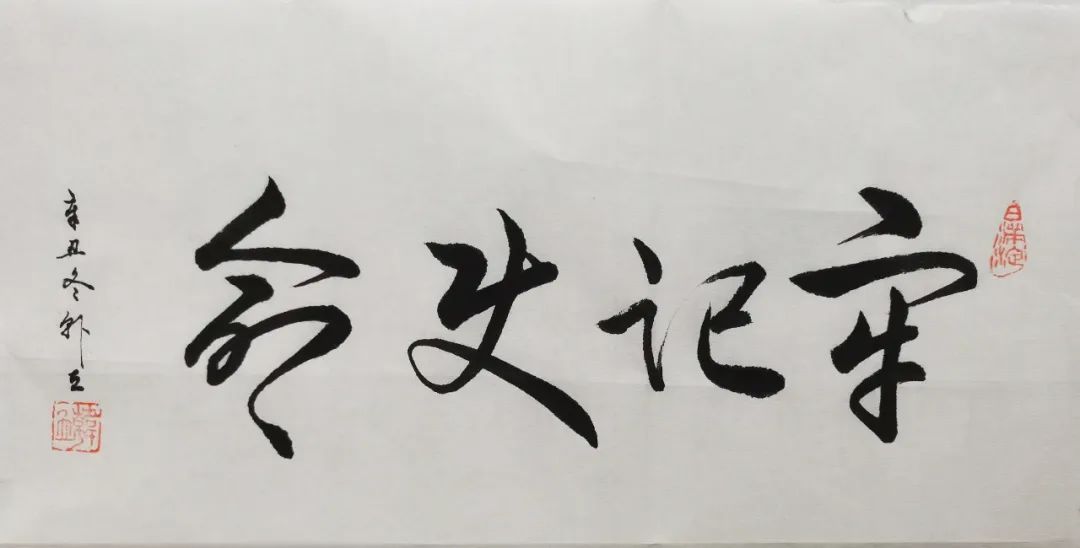 牢记使命
辛丑冬